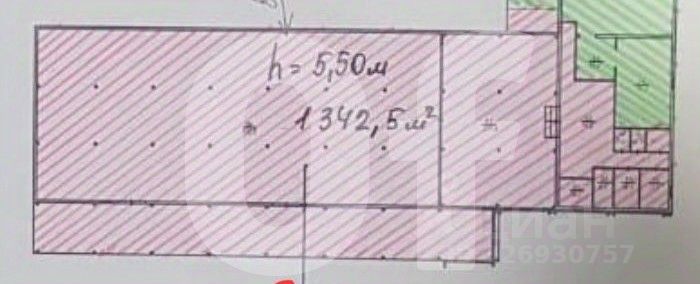 h = 5,50м
1342,5м²
циан
26930757